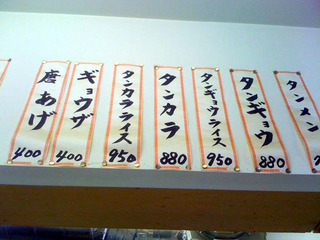 唐あげ
400
ギョウザ
400
タンカラライス
950
タンカラ
880
タンギョウライス
950
タンギョウ
880
タンメン